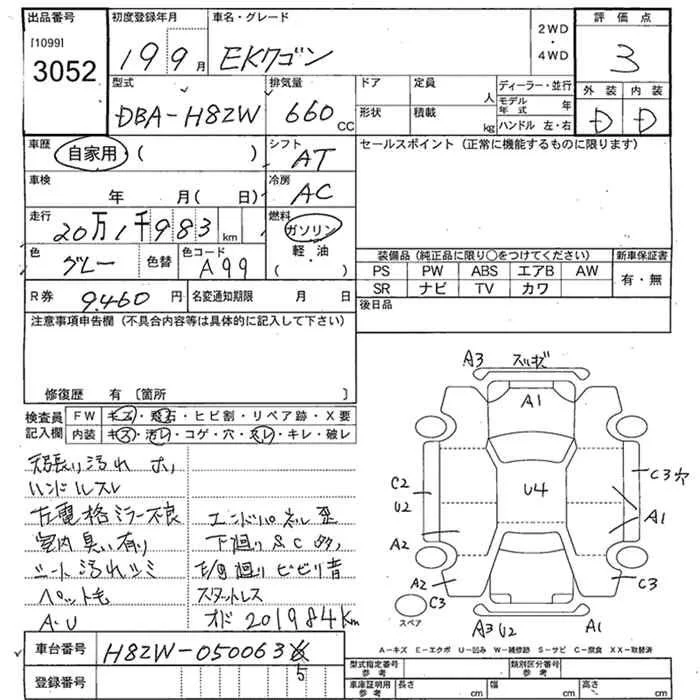 出品番号
[1099]
3052
初度登録年月
19 9月
車名・グレード
EKワゴン
2WD
・
4WD
評価点
3
外装 内装
D D
型式
DBA-H82W
排気量
660 CC
ドア
形状
定員 人
積載 kg
ディーラー・並行
モデル年式 年
ハンドル 左・右
車歴
自家用・( )
シフト
AT
セールスポイント (正常に機能するものに限ります)
車検
年 月( 日)
冷房
AC
走行
20万1千983km
燃料
ガソリン
軽・油
( ・ )
色
グレー 色替
色コード
A99
装備品 (純正品に限り○をつけてください)
新車保証書
PS PW ABS エアB AW
SR ナビ TV カワ
有・無
R券 9.460円
名変通知期限 月 日
後日品
注意事項申告欄 (不具合内容等は具体的に記入して下さい)
修復歴 有 〔箇所 〕
検査員記入欄
FW キズ・飛石・ヒビ割・リペア跡・X要
内装 キズ・汚レ・コゲ・穴・スレ・キレ・破レ
天張り汚れ ホリ
ハンドルスレ
左電格ミラー不良
室内臭い有り
シート汚れシミ
ペット毛
A・U
エンドパネル歪
下廻りS C 多
ビビリ音
スタットレス
オド201984km
A3 スリキズ
A1
U4
C2
U2
A2
A2
C3
スペア
C3穴
A1
C3
A3 U2
A1
A-キズ E-エクボ U-凹み W-補修跡 S-サビ C-腐食 XX-取替済
車台番号 H82W-0500635
登録番号
型式指定番号
参考
類別区分番号
参考
車庫証明用
参考
長さ cm 幅 cm 高さ cm